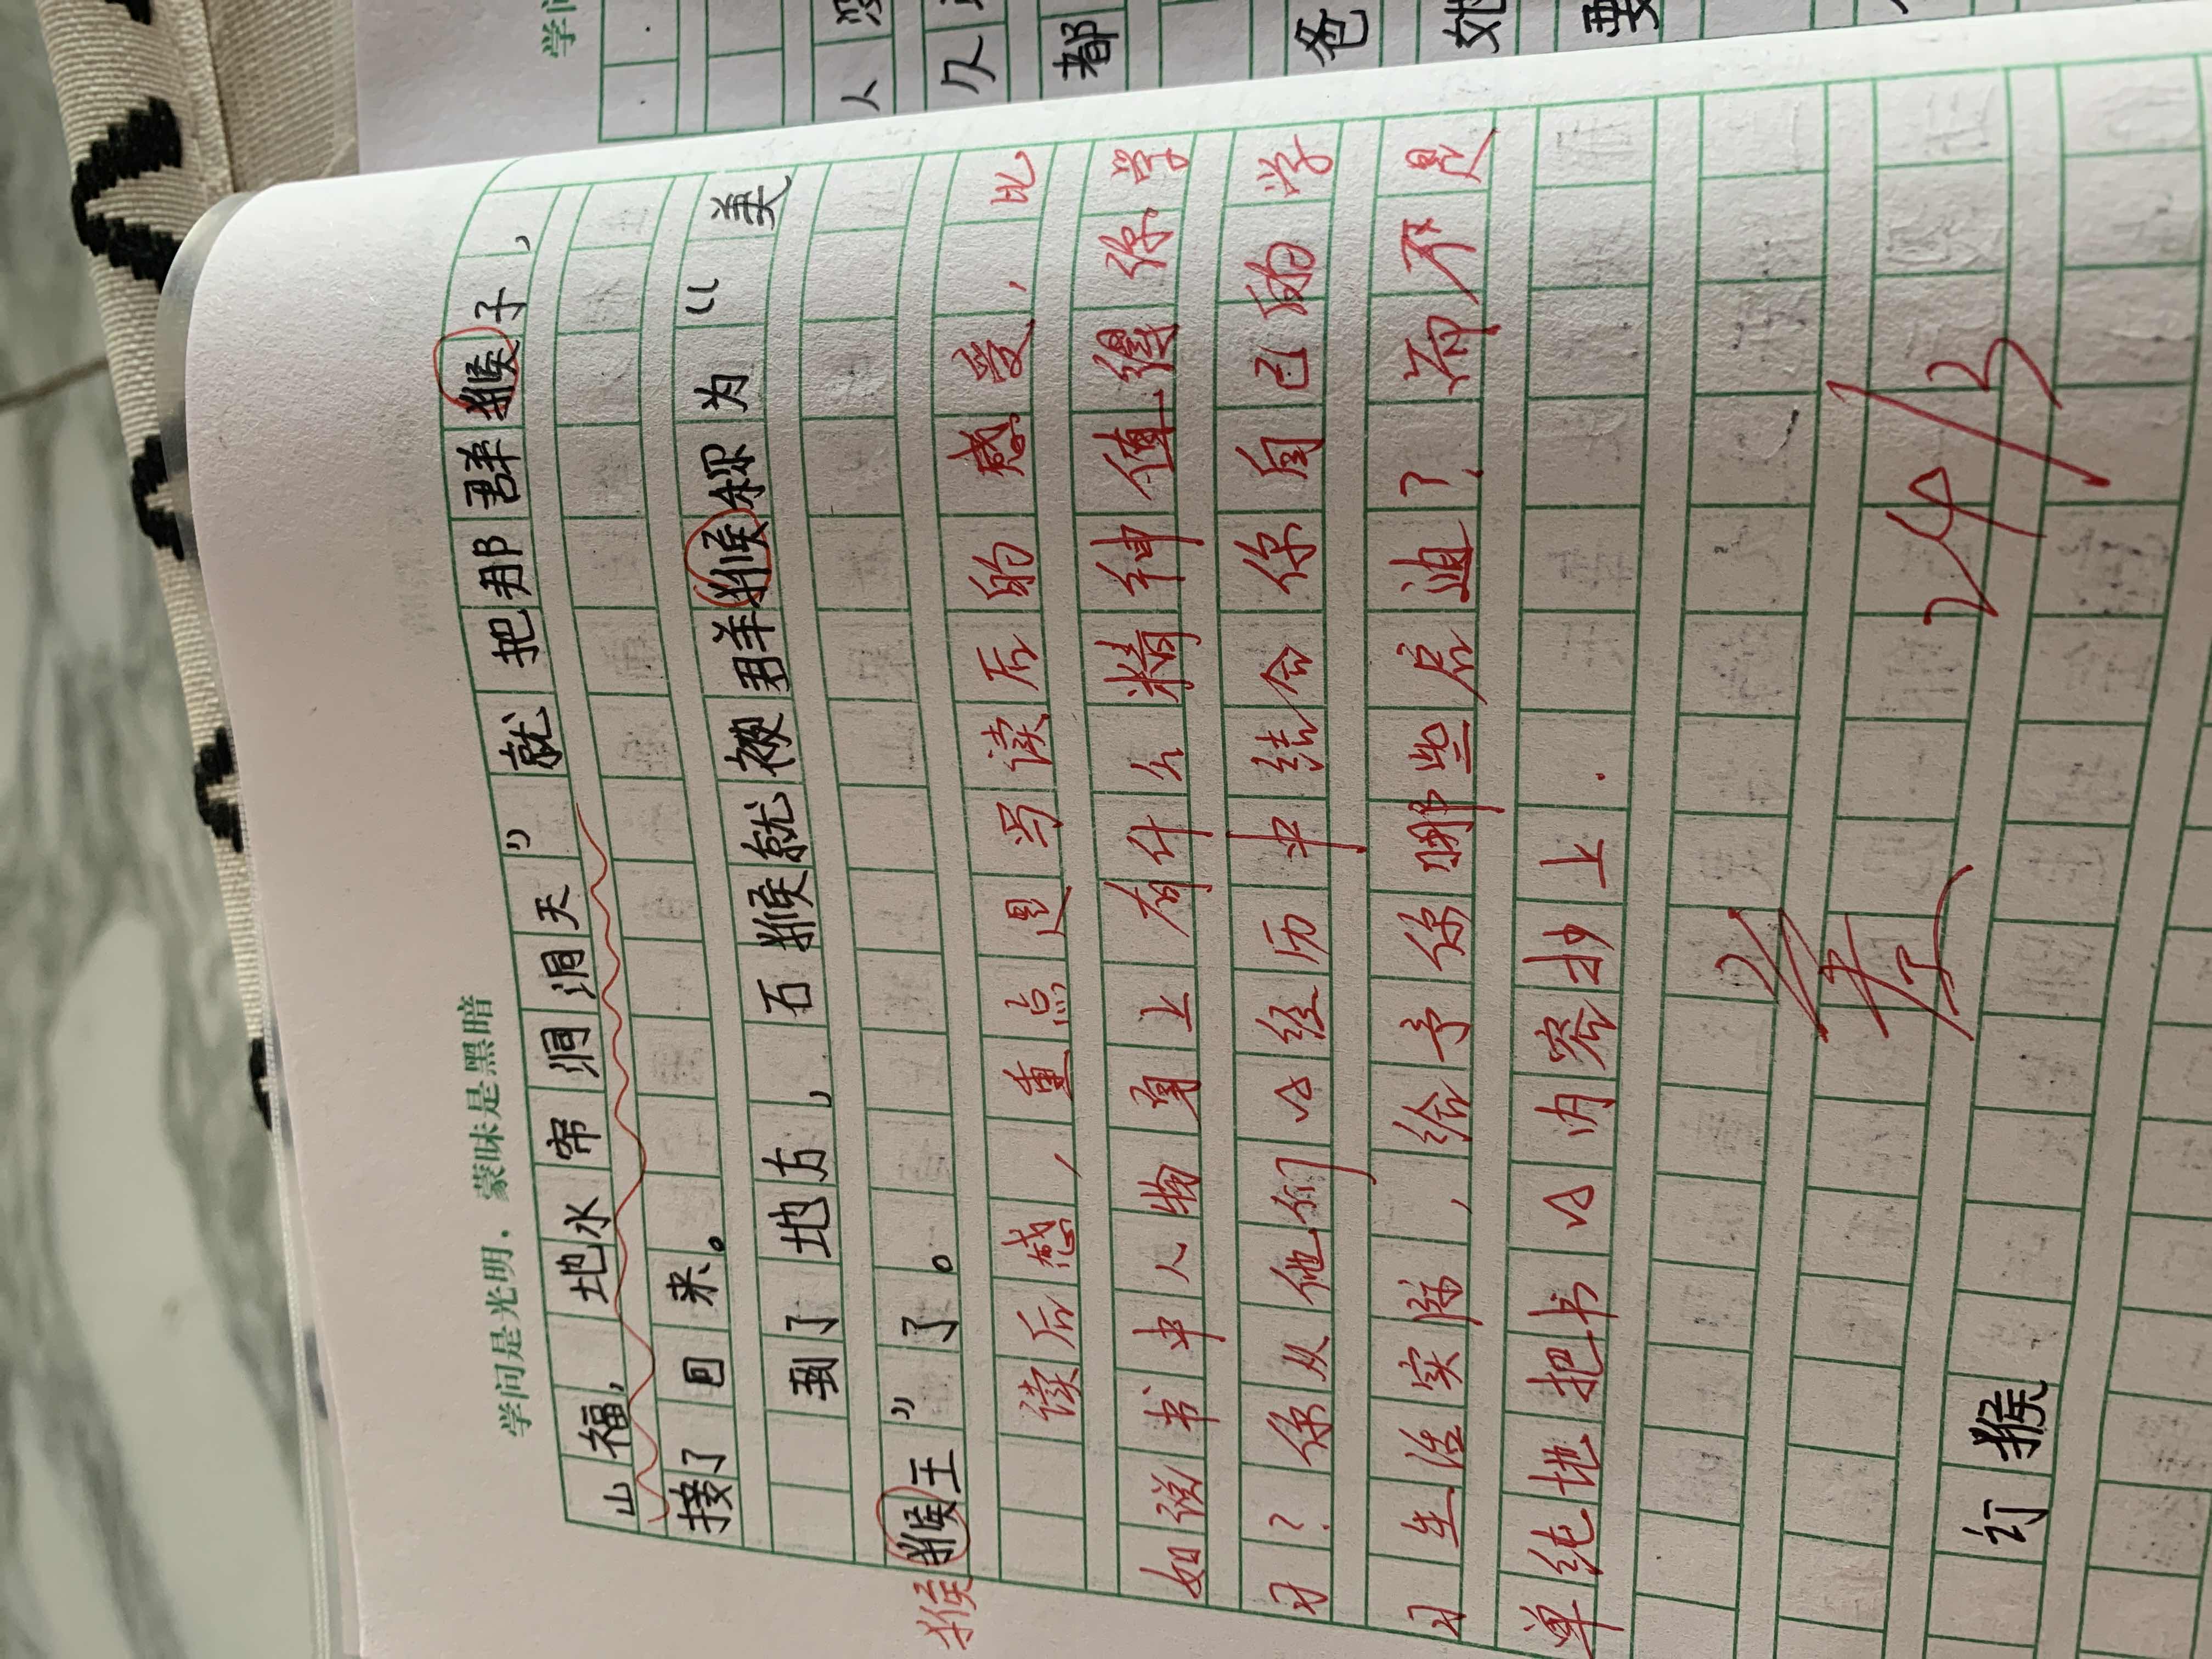 学问是光明，蒙昧是黑暗
山福，地水帘洞洞天”就把那群猴子，
接了回来。
到了地方，石猴就被群猴称为“美
猴王”了。
猴
读后感，重点是写读后的感受，比
如说书中人物身上有什么精神值得你学
习？你从他们的经历中结合你自己的学
习生活实际，给予你哪些启迪？而不是
单纯地把书的内容抄上．
24/3
订猴
学问
人
久
都
爸
她
要